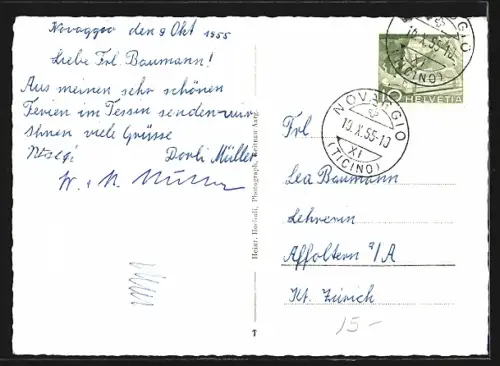 Novaggio den 9 Okt 1955
Liebe Frl. Baumann!
Aus meinen sehr schönen
Ferien im Tessin senden wir
Ihnen viele Grüsse
Dorli Müller
W. + M. Müller
Photograph, Beitnau Aarg.
T
10
HELVETIA
NOVAGGIO
10.X.55-10
XI
(TICINO)
NOVAGGIO
10.X.55-10
XI
(TICINO)
Frl
Lea Baumann
Lehrerin
Affoltern a/A
Kt. Zürich
15-